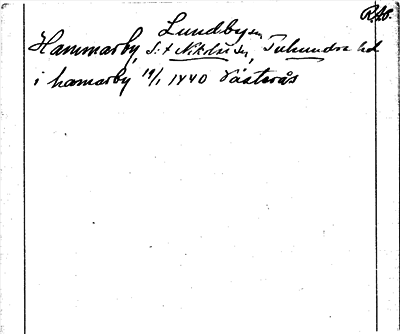 RAp.
Lundbysn
Hammarby, S:t Nikolai sn, Tuhundra hd
i hamarby 19/1 1440 Västerås